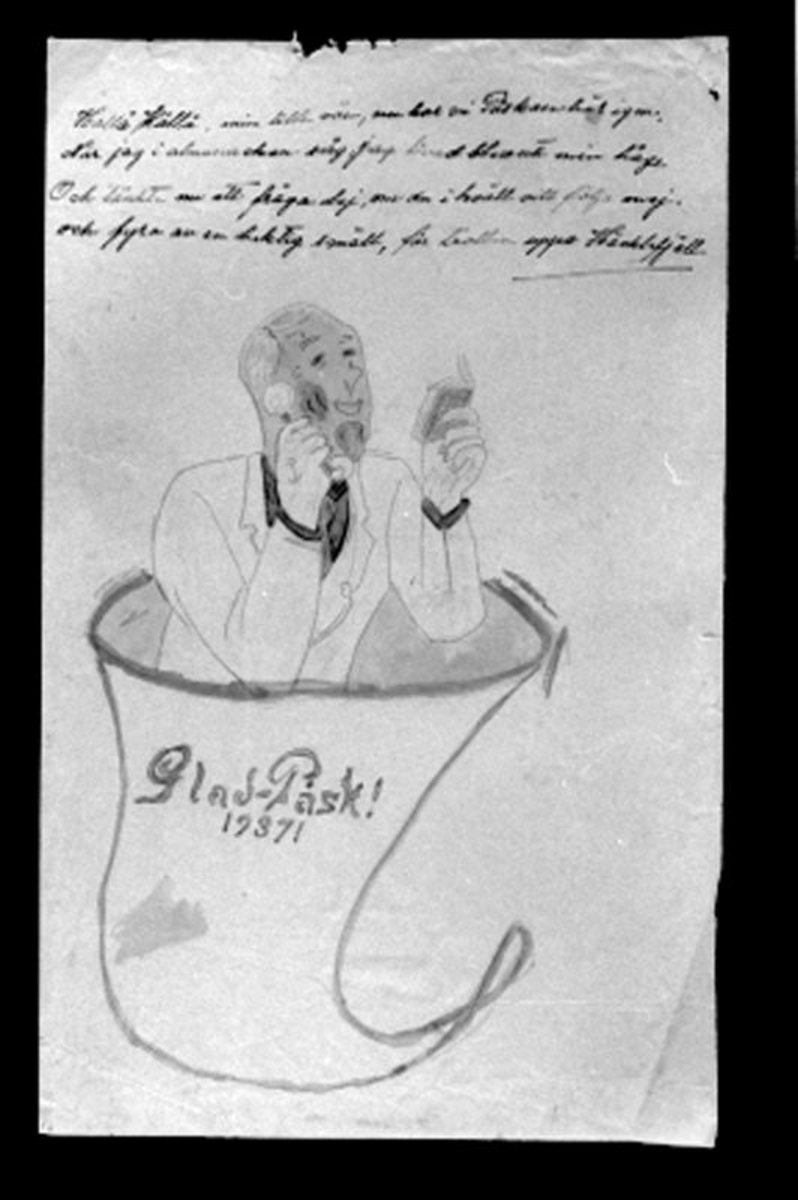 Hallå Hallå, min lilla vän, nu har vi Påsken här igen.
När jag i almanackan såg jag blev min håg.
Och tänkte nu att fråga dej, om du i kväll vill följa mej.
och fyra av en hektig smäll, för trollen uppå Häcklefjäll
Glad-Påsk!
1937!